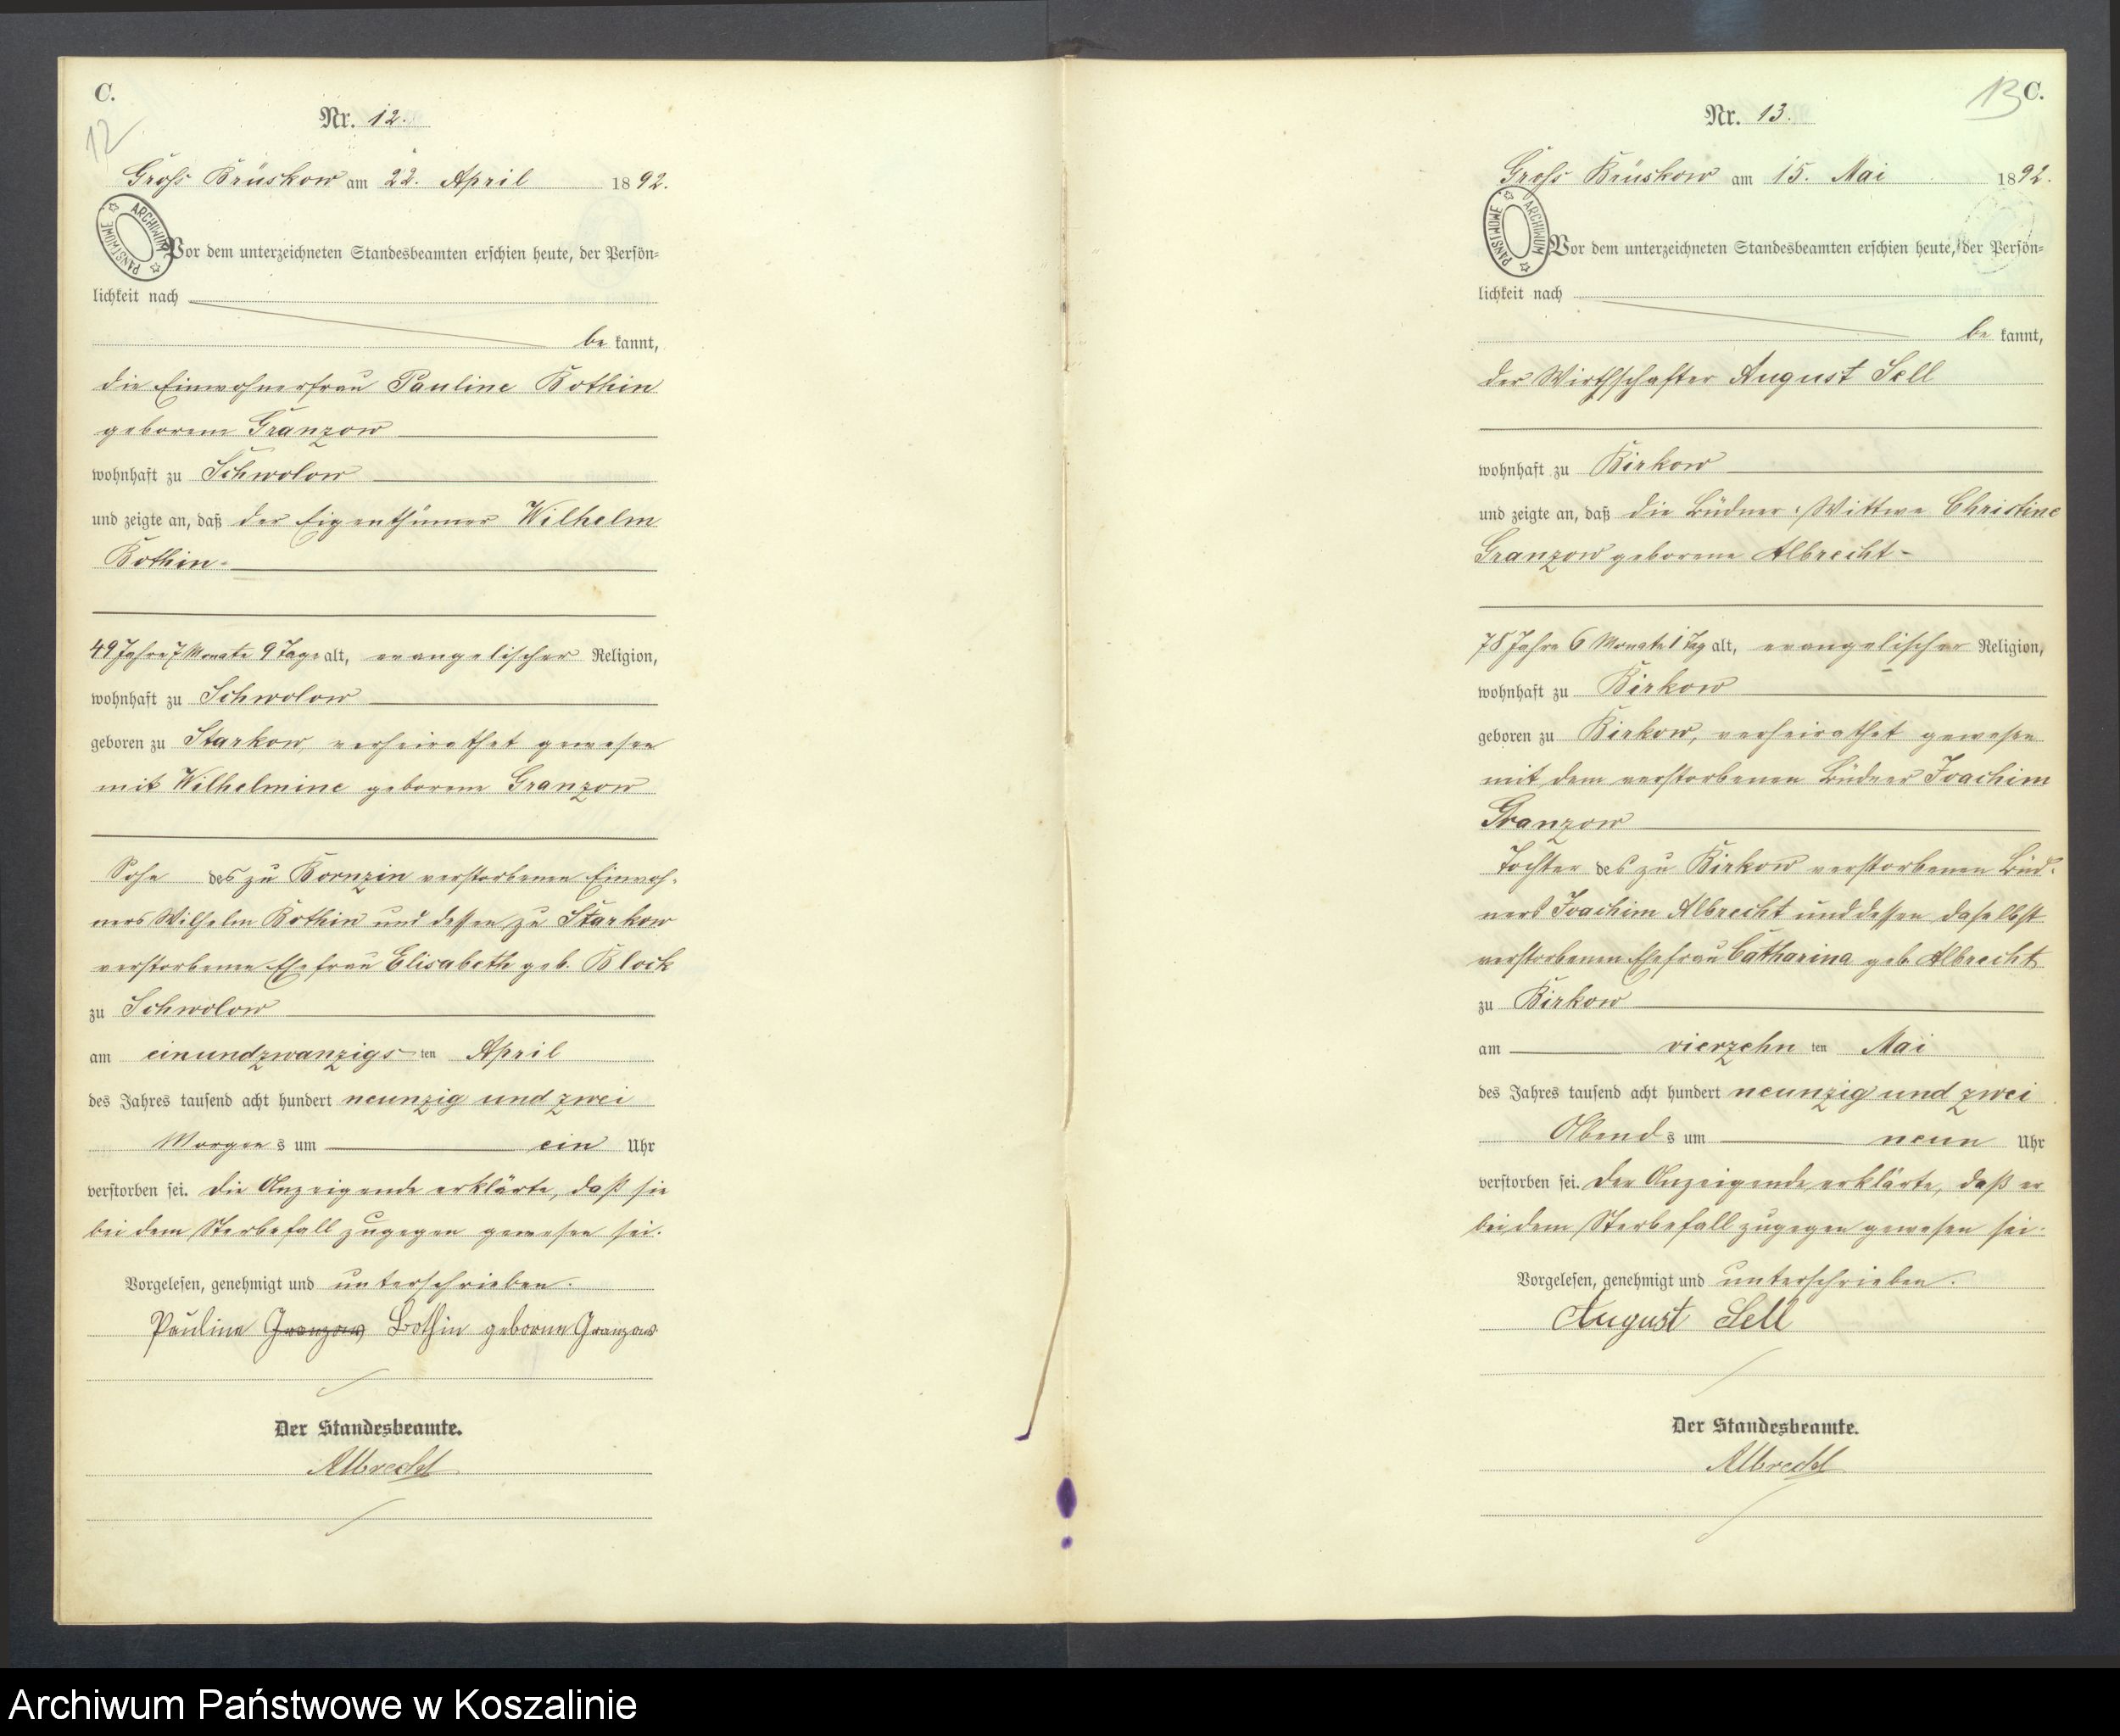 C.
12
Nr. 12.
Groß Brüskow am 22. April 1892.
ARCHIWUM PAŃSTWOWE
Vor dem unterzeichneten Standesbeamten erschien heute, der Persön-
lichkeit nach
be kannt,
die Einwohnerfrau Pauline Bothin
geborene Granzow
wohnhaft zu Schwolow
und zeigte an, daß der Eigenthümer Wilhelm
Bothin.
49 Jahre 7 Monate 9 Tage alt, evangelischer Religion,
wohnhaft zu Schwolow
geboren zu Starkow verheirathet gewesen
mit Wilhelmine geborene Granzow
Sohn des zu Bornzin verstorbenen Einwoh-
ners Wilhelm Bothin und dessen zu Starkow
verstorbene Ehefrau Elisabeth geb. Block
zu Schwolow
am einundzwanzigs ten April
des Jahres tausend acht hundert neunzig und zwei
Morgen s um ein Uhr
verstorben sei. Die Anzeigende erklärte, daß sie
bei dem Sterbefall zugegen gewesen sei.
Vorgelesen, genehmigt und unterschrieben.
Pauline Granzow Bothin geborne Granzow
Der Standesbeamte.
Albrecht
13 C.
Nr. 13.
Groß Brüskow am 15. Mai 1892.
ARCHIWUM PAŃSTWOWE
Vor dem unterzeichneten Standesbeamten erschien heute, der Persön-
lichkeit nach
be kannt,
der Wirthschafter August Sell
wohnhaft zu Birkow
und zeigte an, daß die Büdner-Wittwe Christine
Granzow geborene Albrecht
78 Jahre 6 Monate 1 Tag alt, evangelischer Religion,
wohnhaft zu Birkow
geboren zu Birkow, verheirathet gewesen
mit dem verstorbenen Büdner Joachim
Granzow
Tochter des zu Birkow verstorbenen Büd-
ners Joachim Albrecht und dessen daselbst
verstorbenen Ehefrau Catharina geb. Albrecht
zu Birkow
am vierzehn ten Mai
des Jahres tausend acht hundert neunzig und zwei
Abend s um neun Uhr
verstorben sei. Der Anzeigende erklärte, daß er
bei dem Sterbefall zugegen gewesen sei.
Vorgelesen, genehmigt und unterschrieben.
August Sell
Der Standesbeamte.
Albrecht
Archiwum Państwowe w Koszalinie